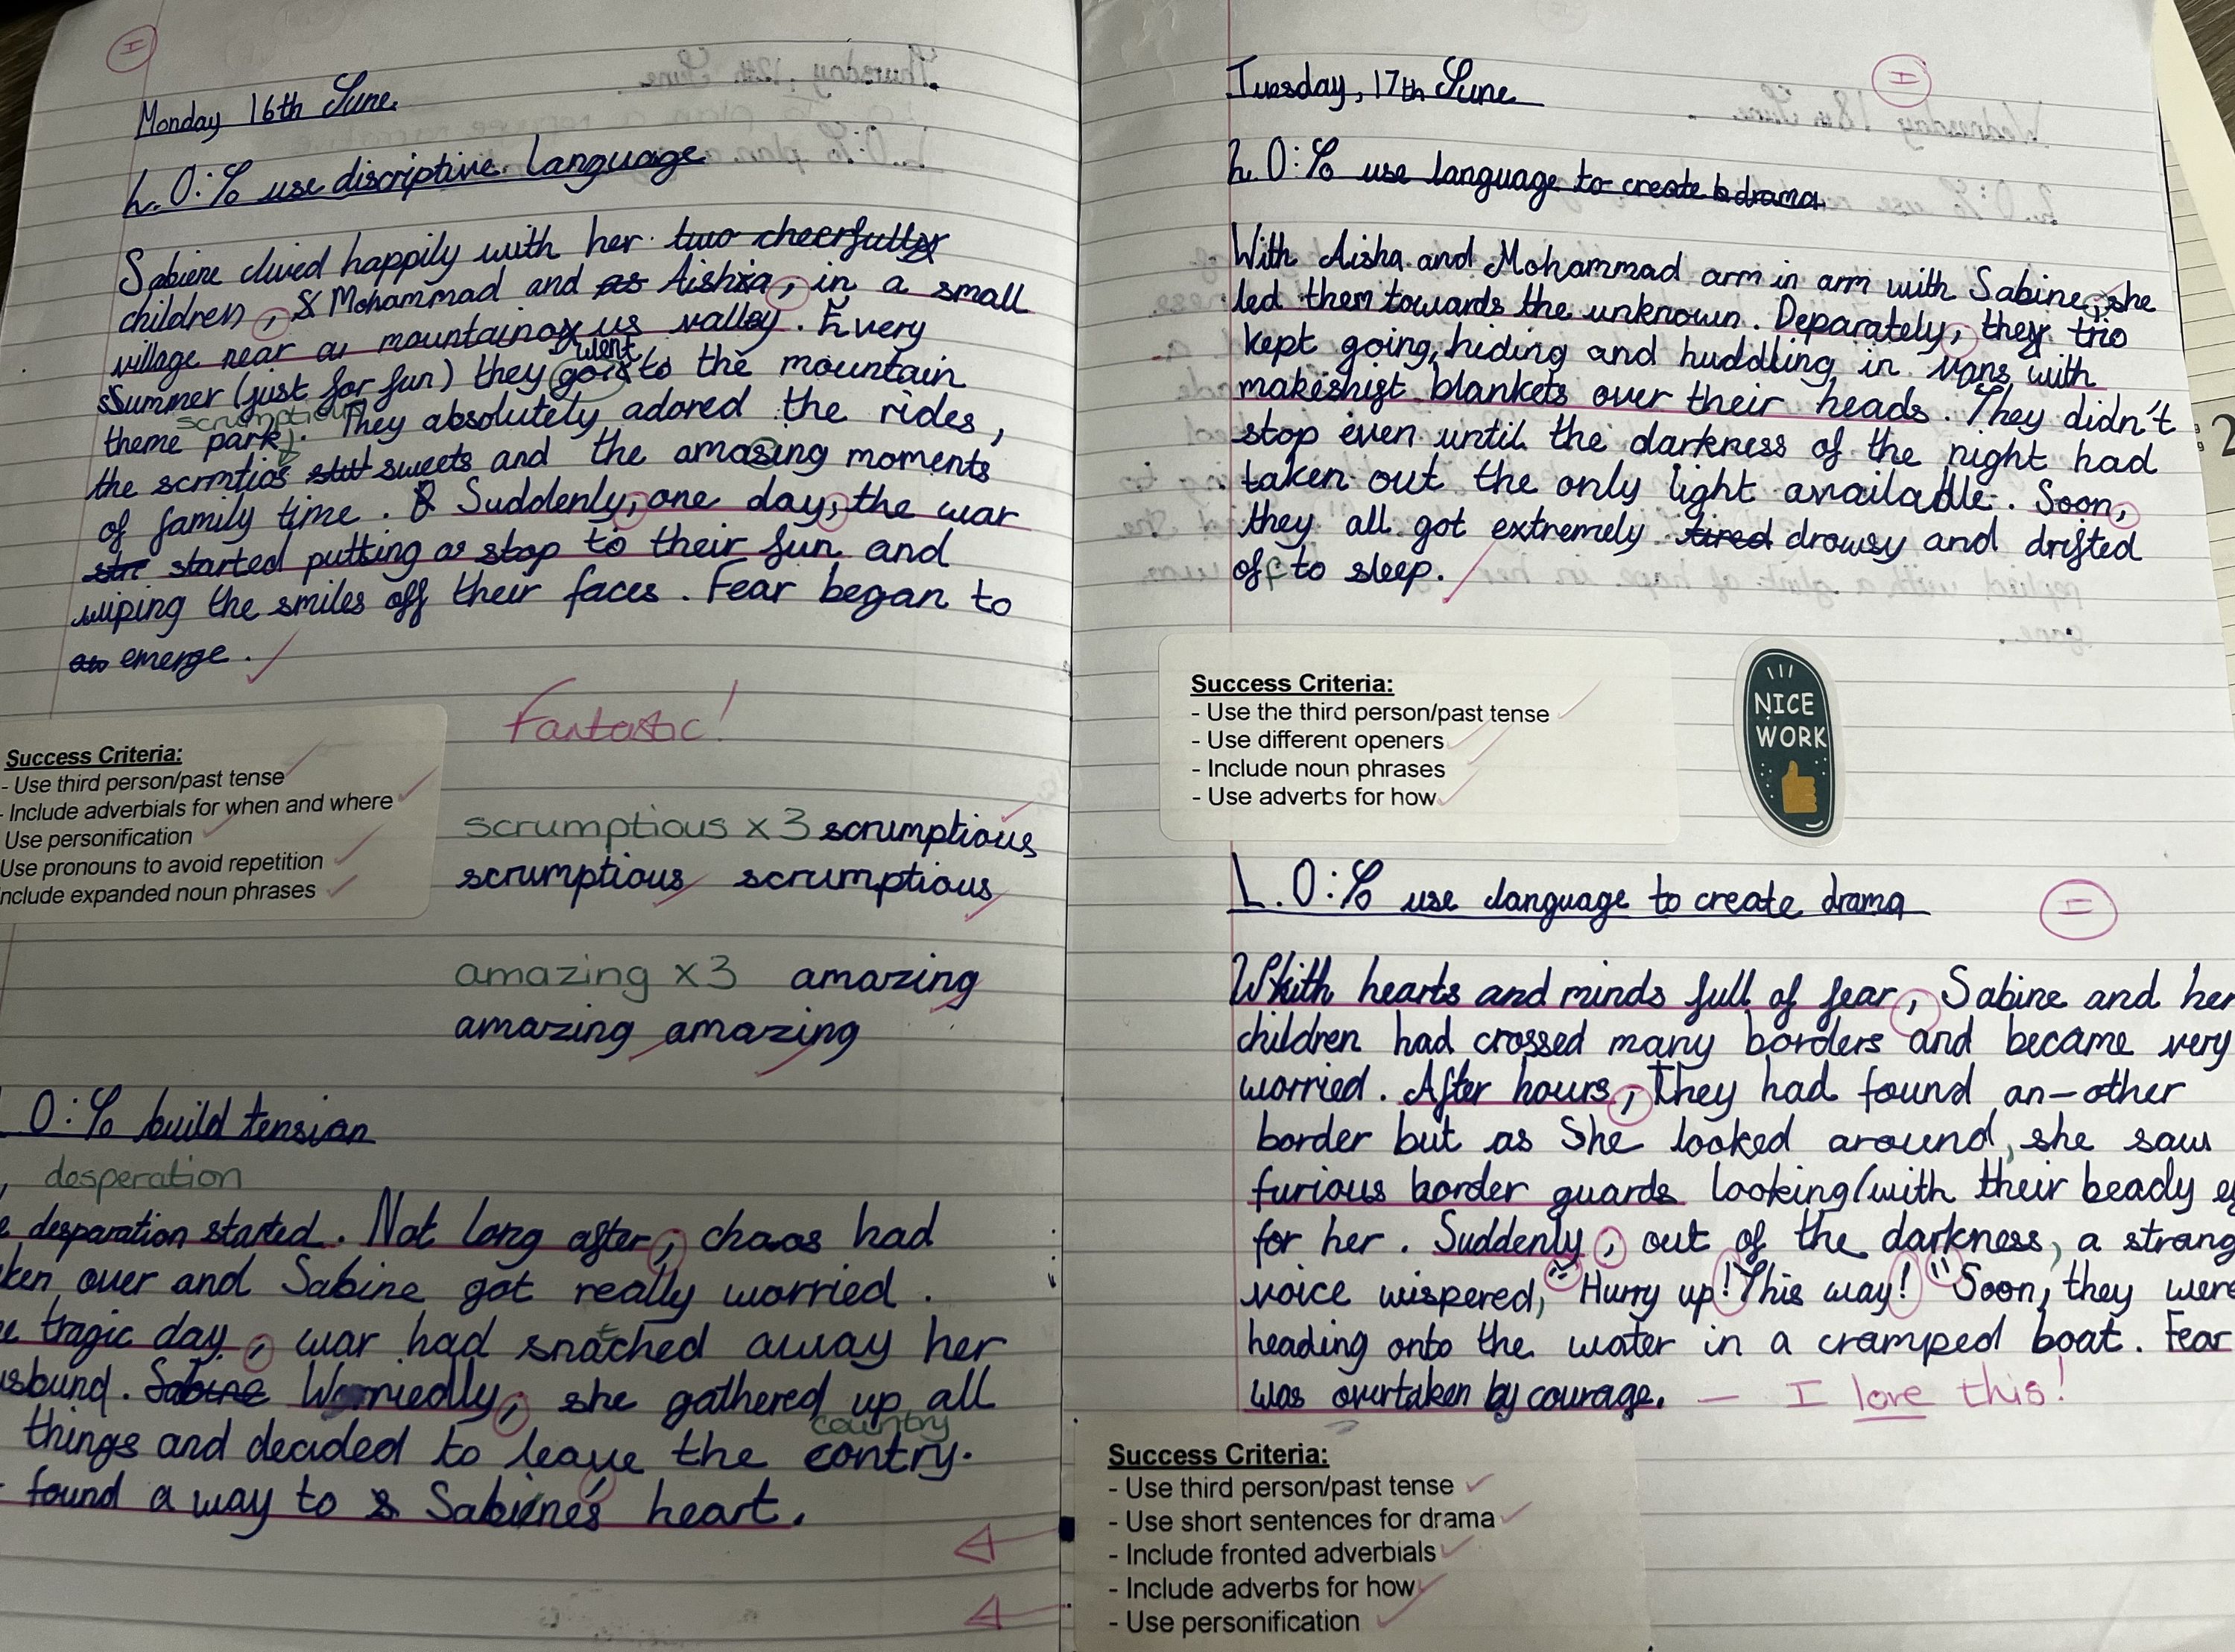 Monday 16th June
L.O: To use discriptive language
Sabiene lived happily with her two cheerfully
children, Mohammad and as Aishia, in a small
village near a mountainous valley. Every
Summer (just for fun) they went to the mountain
scrumptious
theme park. They absolutely adored the rides,
the scrmtios still sweets and the amasing moments
of family time. Suddenly, one day, the war
str started putting a stop to their fun and
wiping the smiles off their faces. Fear began to
as emerge.
Fantastic!
Success Criteria:
- Use third person/past tense
- Include adverbials for when and where
Use personification
Use pronouns to avoid repetition
nclude expanded noun phrases
scrumptious x3 scrumptious
scrumptious scrumptious
amazing x3 amazing
amazing amazing
O: To build tension
desperation
desparation started. Not long after, chaos had
ken over and Sabine got really worried.
e tragic day, war had snatched away her
usbund. Sabine Worriedly, she gathered up all
country
things and decided to leave the contry.
found a way to s Sabiene's heart.
I
Tuesday, 17th June
L.O: To use language to create drama
With Aisha and Mohammad arm in arm with Sabine, she
led them towards the unknown. Deparately, they trio
kept going, hiding and huddling in vans with
makeshift blankets over their heads. They didn't
stop even until the darkness of the night had
taken out the only light available. Soon,
they all got extremely tired drowsy and drifted
off to sleep.
Success Criteria:
- Use the third person/past tense
- Use different openers
- Include noun phrases
- Use adverbs for how
NICE
WORK
L.O: To use language to create drama
With hearts and minds full of fear, Sabine and her
children had crossed many borders and became very
worried. After hours, They had found an-other
border but as She looked around, she saw
furious border guards looking (with their beady ey
for her. Suddenly, out of the darkness, a strang
voice wispered, "Hurry up! This way!" Soon, they were
heading onto the water in a cramped boat. Fear
was overtaken by courage. — I love this!
Success Criteria:
- Use third person/past tense
- Use short sentences for drama
- Include fronted adverbials
- Include adverbs for how
- Use personification